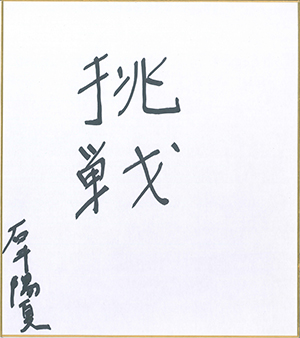 挑戦
石井陽夏